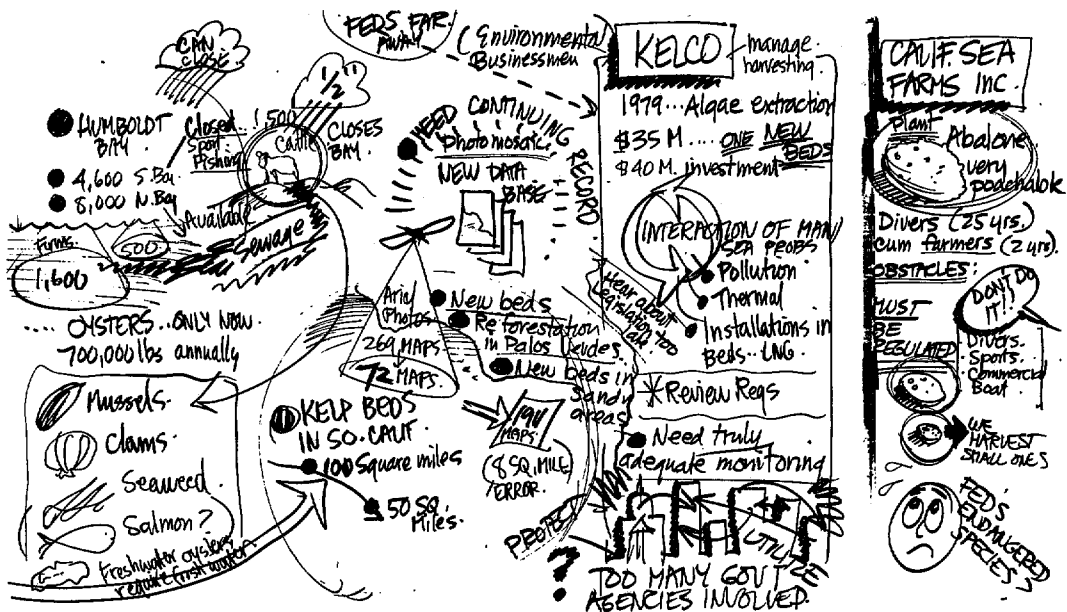 CAN
CLOSE
HUMBOLDT
BAY.
4,600 S. Bay
8,000 N. Bay
Closed
Sport
Fishing
1,500
Cattle
1/2"
CLOSES
BAY.
Available
500
Sewage
Firms
1,600
.... OYSTERS.. ONLY NOW.
700,000 lbs annually
Mussels.
Clams.
Seaweed.
Salmon?
Freshwater oysters
require fresh water
FEDS FAR
AWAY
(Environmental
Businessmen
NEED CONTINUING
RECORD
Photomosaic.
NEW DATA
BASE
Arial
Photos
269 MAPS
72 MAPS.
New beds
Reforestation
in Palos Verdes.
New beds in
Sandy
areas
KELP BEDS
IN SO. CALIF.
100 Square miles
50 SQ.
Miles.
1911
MAPS.
(8 SQ. MILE)
ERROR.
PROTECT
KELCO
manage.
harvesting.
1979... Algae extraction
$35 M.... ONE NEW
BEDS
$40 M. investment
INTERACTION OF MAN
SEA PROBS
Pollution
Thermal
Installations in
Beds.. LNG.
Hear about
Legislation too
late
*Review Regs
Need truly
adequate monitoring
UTILIZE
?
TOO MANY GOV'T
AGENCIES INVOLVED.
CALIF. SEA
FARMS INC.
Plant
Abalone
very
poachable
Divers (25 yrs.)
cum farmers (2 yrs).
OBSTACLES:
DON'T DO
IT!!
MUST
BE
REGULATED
Divers.
Sports.
Commercial
Boat
WE
HARVEST
SMALL ONES
FED'S
ENDANGERED
SPECIES?